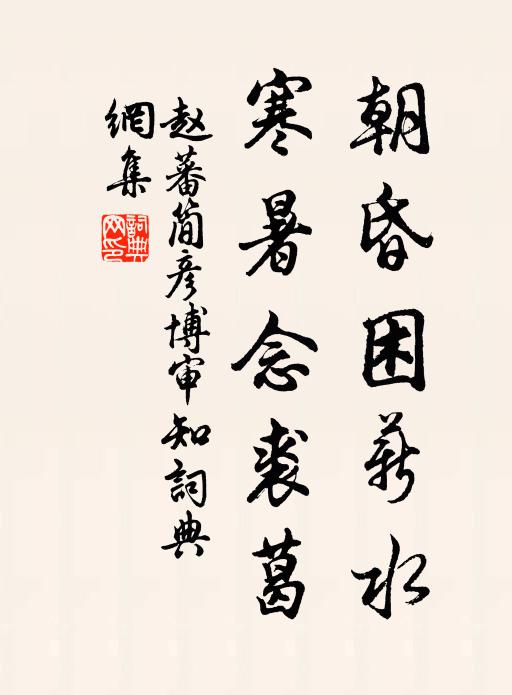 朝昏困薪水
寒暑念裘葛
赵蕃简彦博审知詞典
網集
詞典
网印